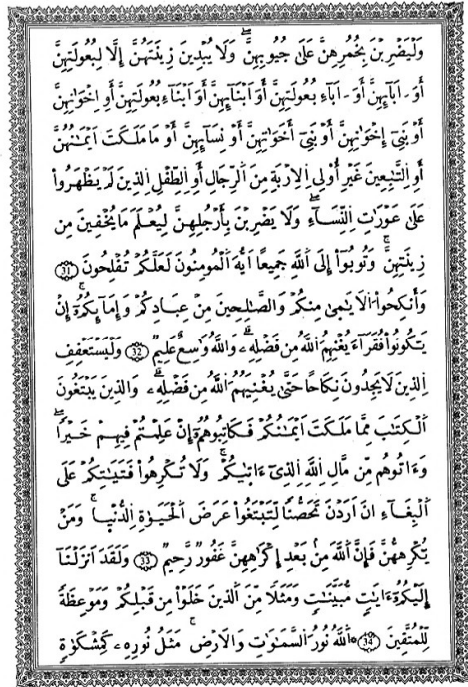 وَلْيَضْرِبْنَ بِخُمُرِهِنَّ عَلَىٰ جُيُوبِهِنَّ وَلَا يُبْدِينَ زِينَتَهُنَّ إِلَّا لِبُعُولَتِهِنَّ
أَوَ ـ ابَآئِهِنَّ أَوَ ـ ابَآءِ بُعُولَتِهِنَّ أَوَ اَبْنَآئِهِنَّ أَوَ اَبْنَآءِ بُعُولَتِهِنَّ أَوِ اِخْوَٰنِهِنَّ
أَوْ بَنِىٓ إِخْوَٰنِهِنَّ أَوْ بَنِىٓ أَخَوَٰتِهِنَّ أَوْ نِسَآئِهِنَّ أَوْ مَا مَلَكَتَ اَيْمَٰنُهُنَّ
أَوِ اِلتَّٰبِعِينَ غَيْرِ أُوْلِى اِلِارْبَةِ مِنَ اَلرِّجَالِ أَوِ اِلطِّفْلِ اِلذِينَ لَمْ يَظْهَرُواْ
عَلَىٰ عَوْرَٰتِ اِلنِّسَآءِ وَلَا يَضْرِبْنَ بِأَرْجُلِهِنَّ لِيُعْلَمَ مَا يُخْفِينَ مِن
زِينَتِهِنَّ وَتُوبُوٓاْ إِلَى اَللَّهِ جَمِيعًا اَيُّهَ اَلْمُومِنُونَ لَعَلَّكُمْ تُفْلِحُونَ 31
وَأَنكِحُواْ اُلَايَٰمَىٰ مِنكُمْ وَالصَّٰلِحِينَ مِنْ عِبَادِكُمْ وَإِمَآئِكُمُۥٓ إِنْ
يَّكُونُواْ فُقَرَآءَ يُغْنِهِمُ اُللَّهُ مِن فَضْلِهِۦ وَاللَّهُ وَٰسِعٌ عَلِيمٌ 32 وَلْيَسْتَعْفِفِ
اِلذِينَ لَا يَجِدُونَ نِكَاحًا حَتَّىٰ يُغْنِيَهُمُ اُللَّهُ مِن فَضْلِهِۦ وَالذِينَ يَبْتَغُونَ
اَلْكِتَٰبَ مِمَّا مَلَكَتَ اَيْمَٰنُكُمْ فَكَاتِبُوهُمُۥٓ إِنْ عَلِمْتُمْ فِيهِمْ خَيْرًا
وَءَاتُوهُم مِّن مَّالِ اِللَّهِ اِلذِىٓ ءَاتَىٰكُمْ وَلَا تُكْرِهُواْ فَتَيَٰتِكُمْ عَلَى
اَلْبِغَآءِ انَ اَرَدْنَ تَحَصُّنًا لِّتَبْتَغُواْ عَرَضَ اَلْحَيَوٰةِ اِلدُّنْيَا وَمَنْ
يُّكْرِههُّنَّ فَإِنَّ اَللَّهَ مِنۢ بَعْدِ إِكْرَٰهِهِنَّ غَفُورٌ رَّحِيمٌ 33 وَلَقَدَ اَنزَلْنَآ
إِلَيْكُمُۥٓ ءَايَٰتٍ مُّبَيَّنَٰتٍ وَمَثَلًا مِّنَ اَلذِينَ خَلَوْاْ مِن قَبْلِكُمْ وَمَوْعِظَةً
لِّلْمُتَّقِينَ 34 اَللَّهُ نُورُ اُلسَّمَٰوَٰتِ وَالَارْضِ مَثَلُ نُورِهِۦ كَمِشْكَوٰةٍ